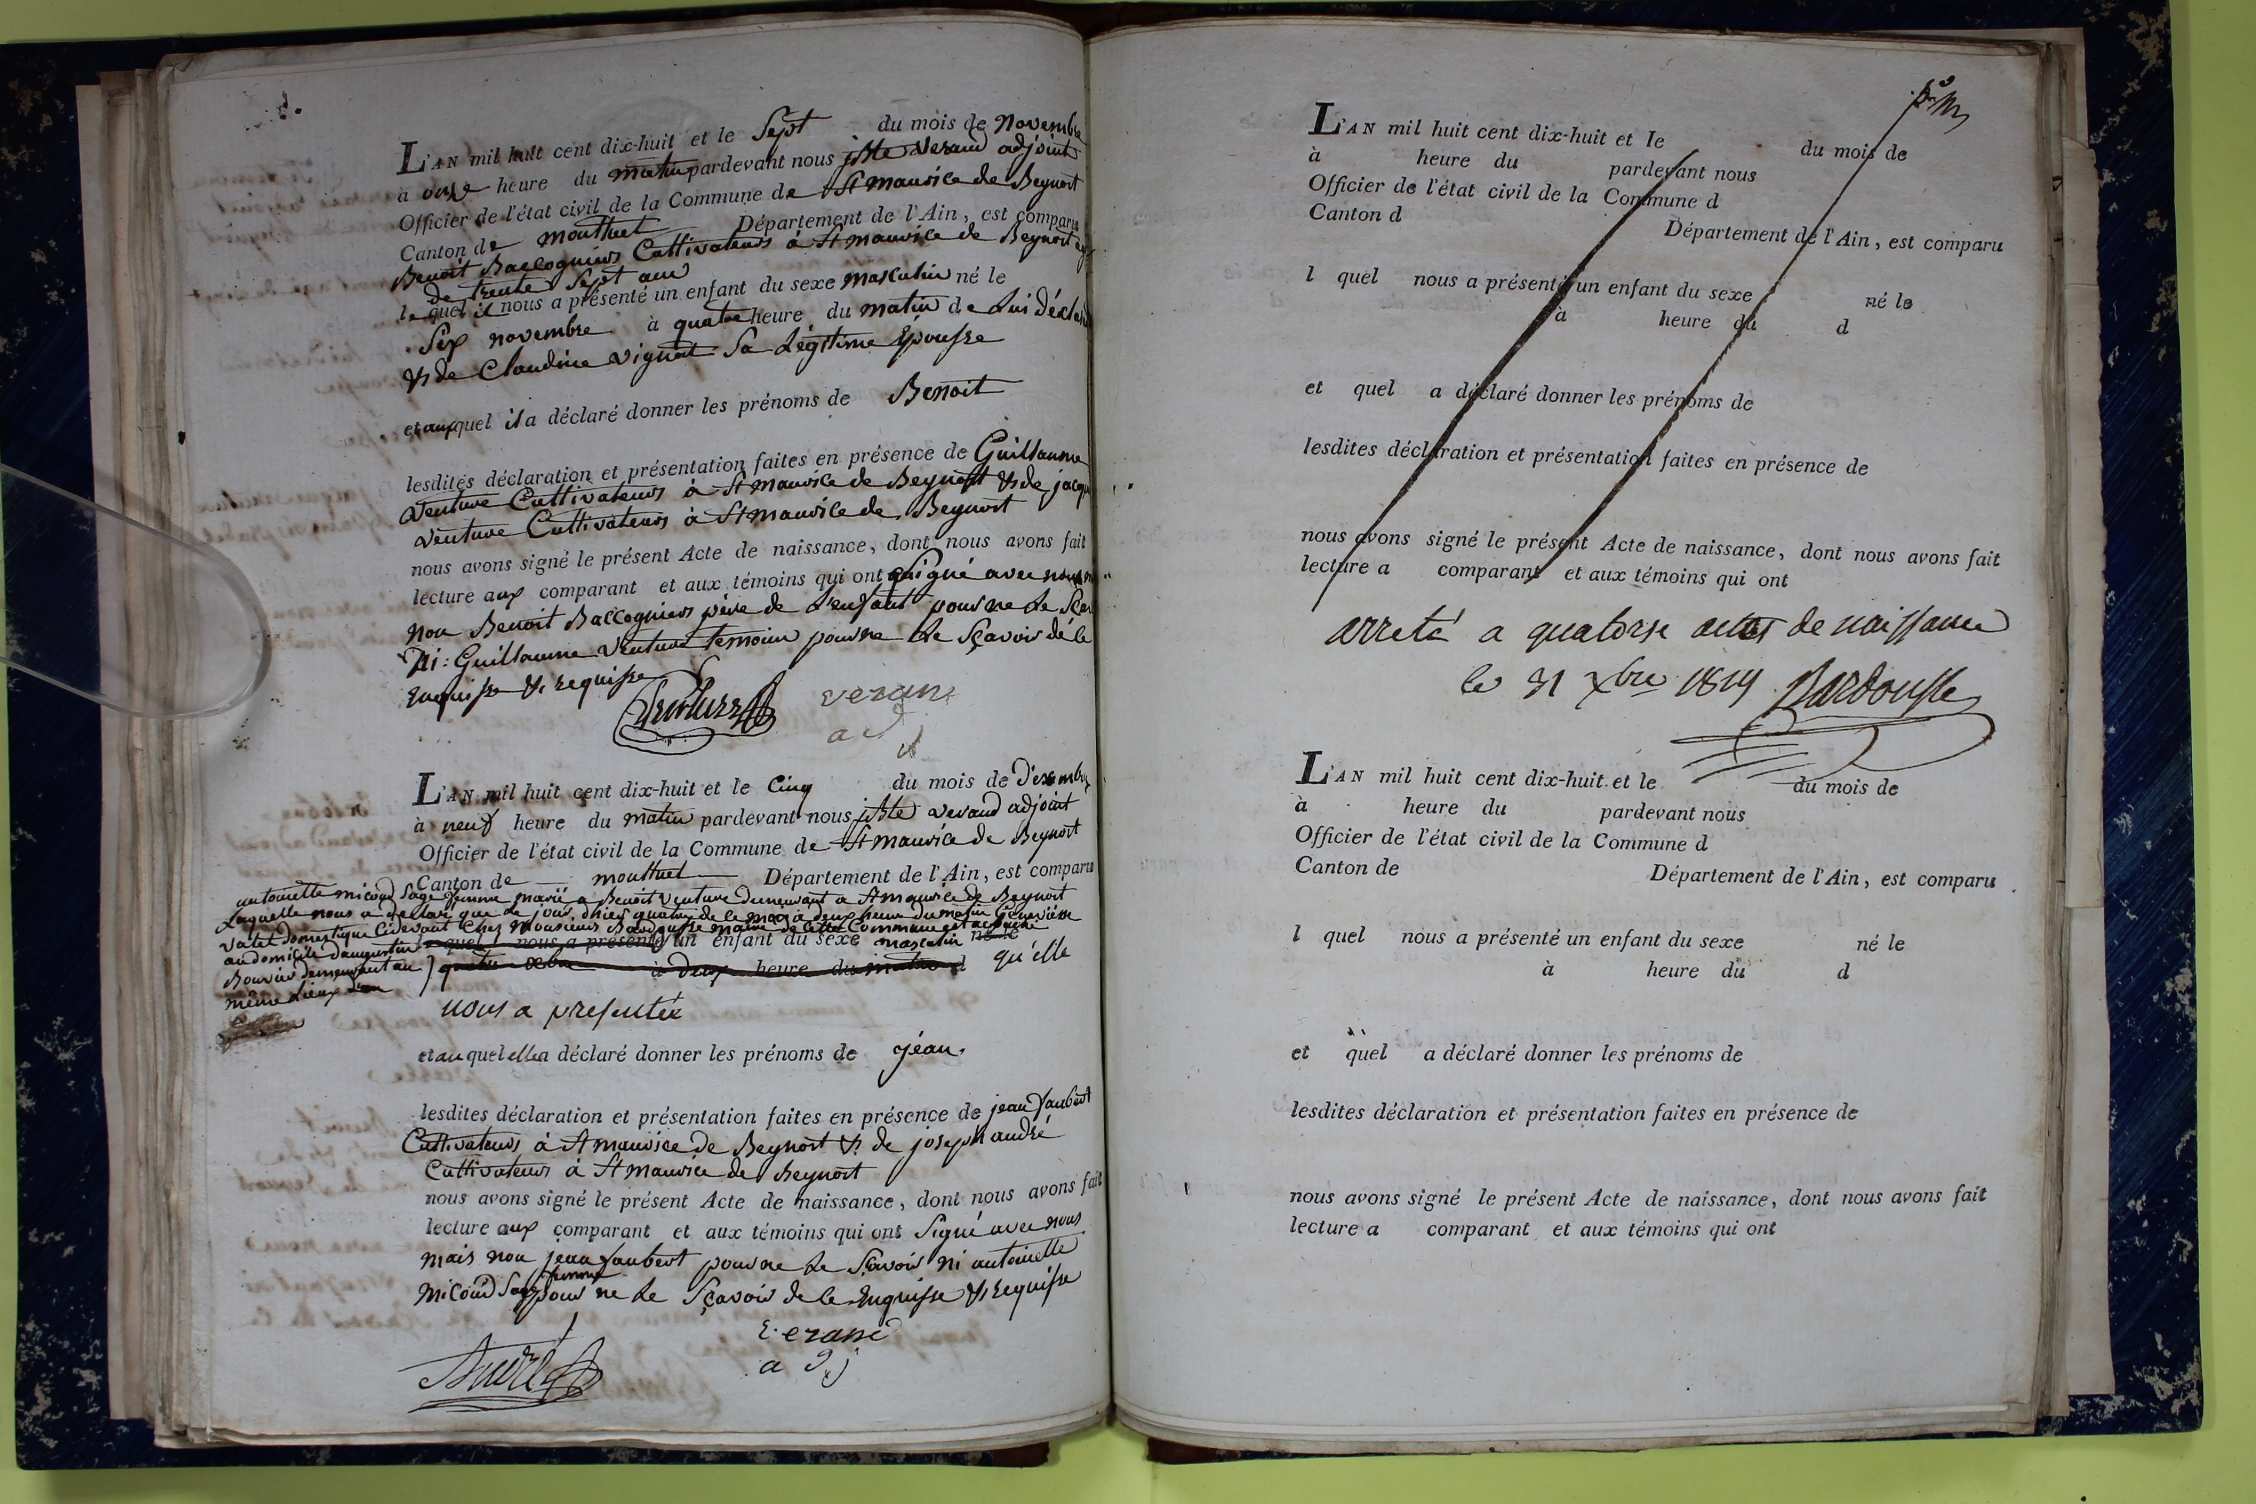 L'AN mil huit cent dix-huit et le Sept du mois de Novembre
à onze heure du matin pardevant nous jBte Verand adjoint
Officier de l'état civil de la Commune de St maurice de Beynost
Canton de montluel Département de l'Ain, est comparu
Benoit Baccognier Cultivateur à St maurice de Beynost
de trente Sept ans
le quel il nous a présenté un enfant du sexe masculin né le
Six novembre à quatre heure du matin de Lui déclarant
& de Claudine vignat Sa Légitime Epousse
et auxquel il a déclaré donner les prénoms de Benoit
lesdites déclaration et présentation faites en présence de Guillaume
Venture Cultivateur à St maurice de Beynost & de jacque
Venture Cultivateur à St maurice de Beynost
nous avons signé le présent Acte de naissance, dont nous avons fait
lecture aux comparant et aux témoins qui ont Signé avec nous
non Benoit Baccognier père de L'enfant pour ne Le
Ni: Guillaume Venture temoin pour ne Le Sçavoir dé ce
Enquisse & requisse
Venturre
verand
adj
L'AN mil huit cent dix-huit et le Cinq du mois de Décembre
à neuf heure du matin pardevant nous jBte Verand adjoint
Officier de l'état civil de la Commune de St maurice de Beynost
Canton de montluel Département de l'Ain, est comparu
antoinette micoud Sage femme marié a Benoit Venture demeurant a St maurice de Beynost
Laquelle nous a declaré que ce jour d'hier quatre de ce mois à deux heure du matin Genevieve
Valet domestique Cidevant Chez Monsieur Bardousse maire de cette Commune est
quel nous a présenté un enfant du sexe masculin né le
au domicile d'augustin
Bouvier demeurant au
même Lieux
quatre Xbre à deux heure du matin d qu'elle
nous a presentée
et au quel elle a déclaré donner les prénoms de jean.
lesdites déclaration et présentation faites en présence de jean jaubert
Cultivateur à St maurice de Beynost & de joseph andré
Cultivateur à St maurice de Beynost
nous avons signé le présent Acte de naissance, dont nous avons fait
lecture aux comparant et aux témoins qui ont Signé avec nous
mais non jean jaubert pour ne Le Sçavoir ni antoinette
micoud Sage femme pour ne Le Sçavoir de ce Enquisse & requisse
André
verand
adj
L'AN mil huit cent dix-huit et le du mois de
à heure du pardevant nous
Officier de l'état civil de la Commune d
Canton d Département de l'Ain, est comparu
l quel nous a présenté un enfant du sexe né le
à heure du d
et quel a déclaré donner les prénoms de
lesdites déclaration et présentation faites en présence de
nous avons signé le présent Acte de naissance, dont nous avons fait
lecture a comparant et aux témoins qui ont
arreté a quatorse actes de naissance
le 31 Xbre 1818 Bardousse
L'AN mil huit cent dix-huit et le du mois de
à heure du pardevant nous
Officier de l'état civil de la Commune d
Canton de Département de l'Ain, est comparu
l quel nous a présenté un enfant du sexe né le
à heure du d
et quel a déclaré donner les prénoms de
lesdites déclaration et présentation faites en présence de
nous avons signé le présent Acte de naissance, dont nous avons fait
lecture a comparant et aux témoins qui ont